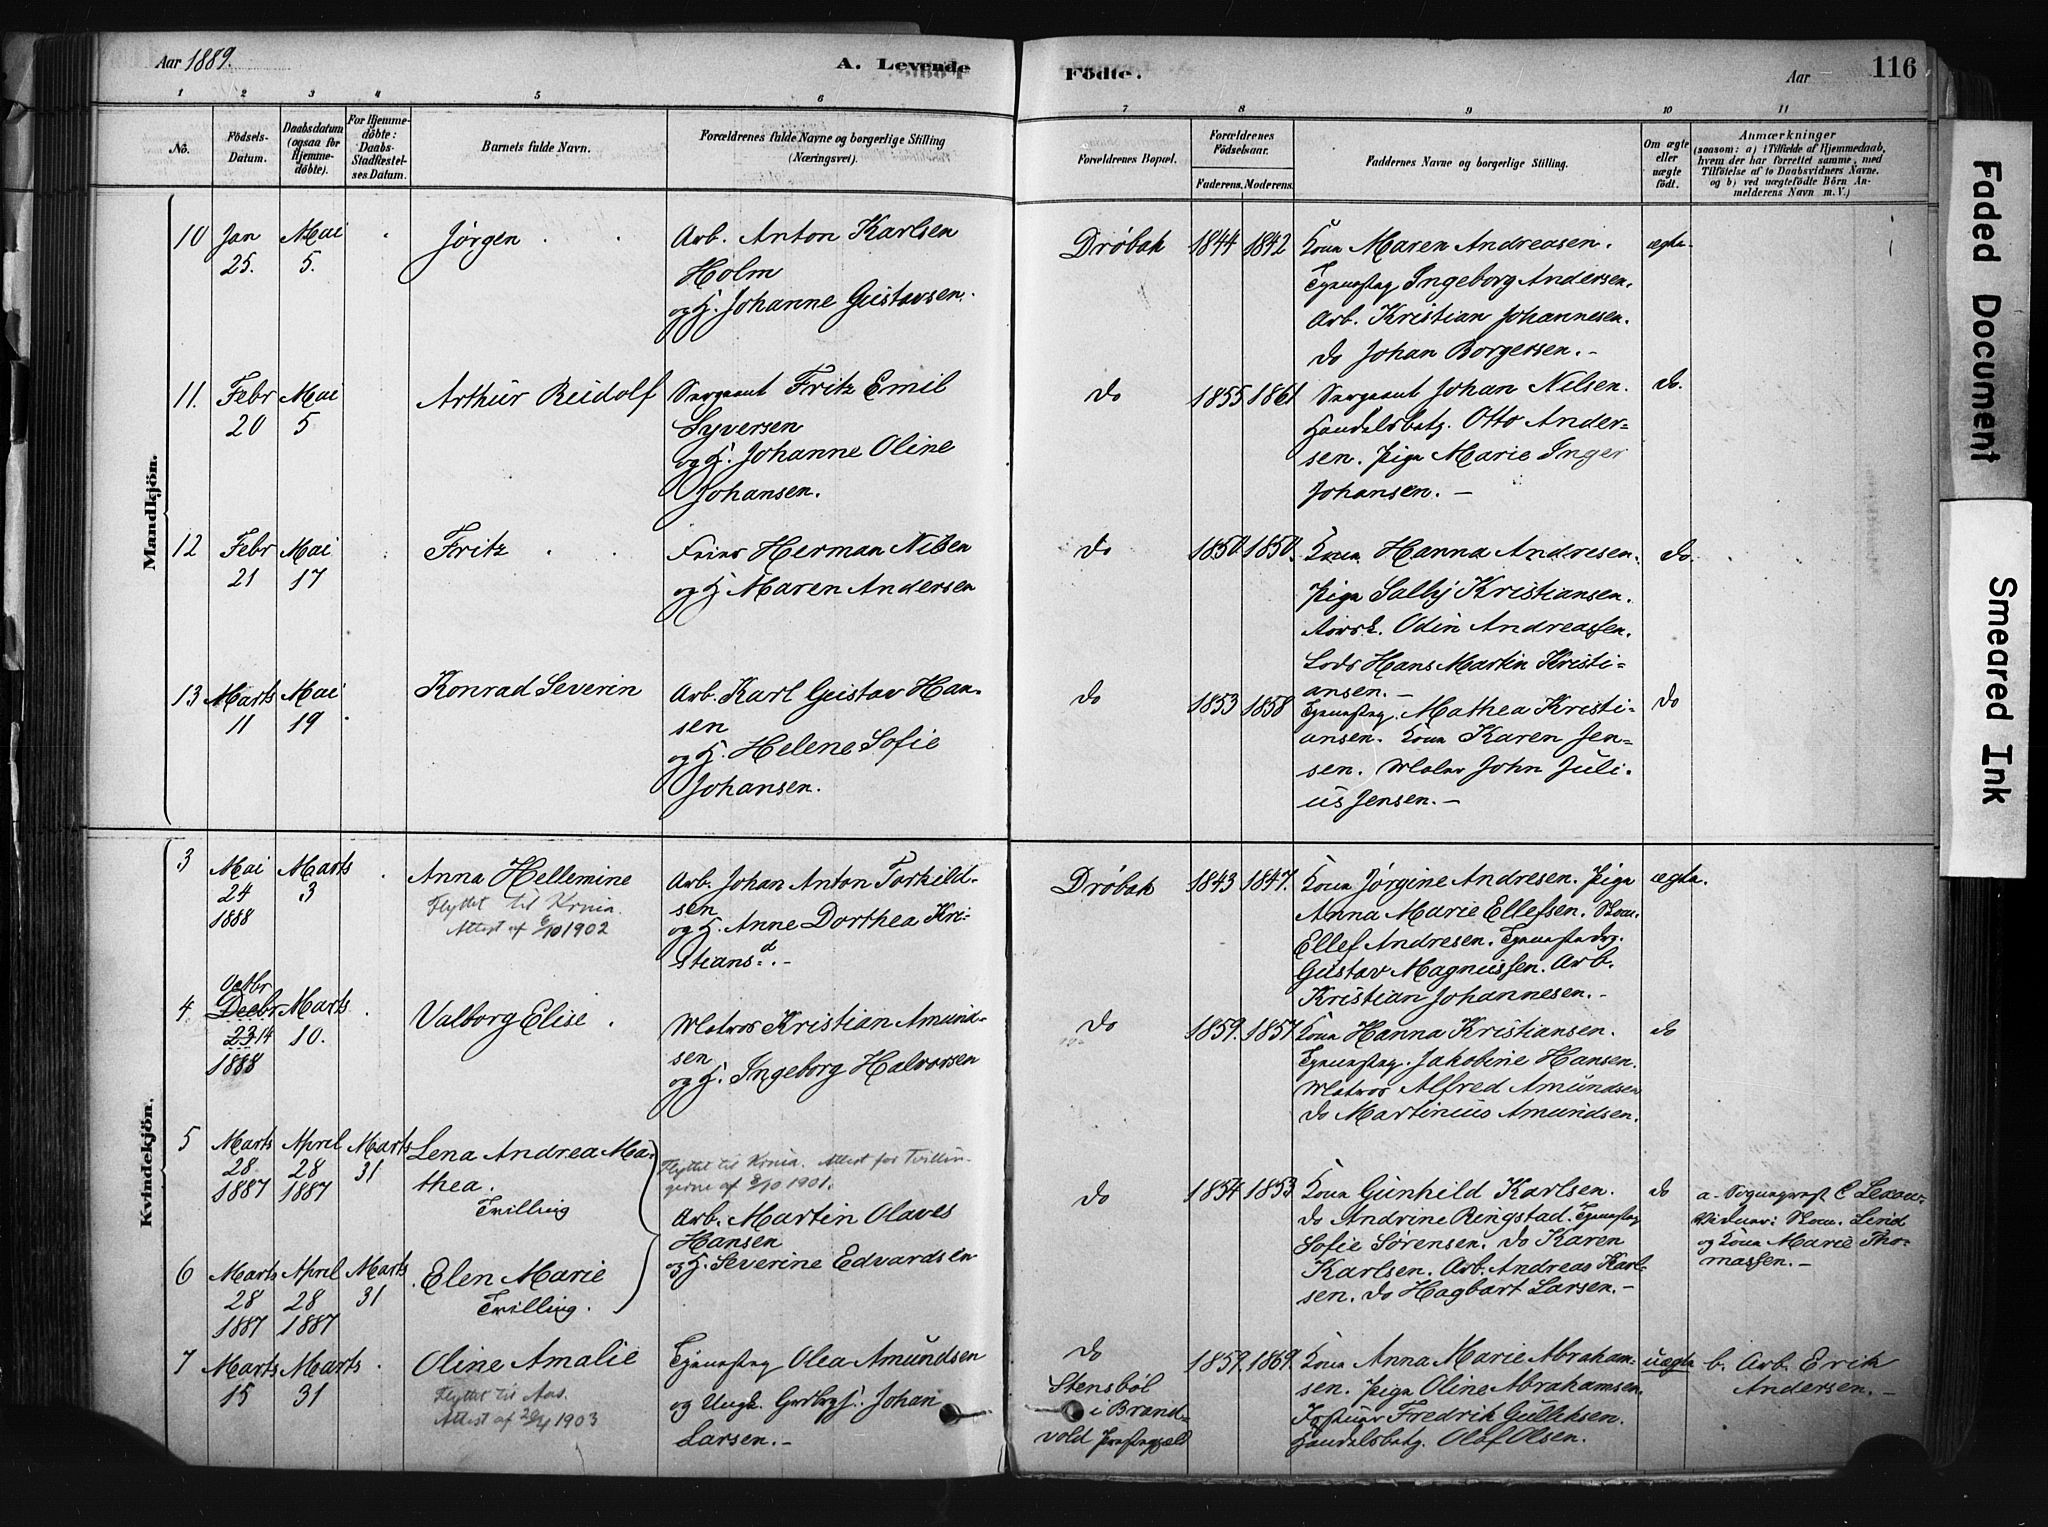 Aar 1889.
A. Levende
Födte.
Aar
116
1 2 3 4 5 6
7 8 9 10 11
No.
Födsels-
Datum.
Daabsdatum
(ogsaa for
Hjemme-
døbte).
For Hjemme-
døbte:
Daabs-
Stadfæstel-
ses Datum.
Barnets fulde Navn.
Forældrenes fulde Navne og borgerlige Stilling
(Næringsvei).
Forældrenes Bopæl.
Forældrenes
Födselsaar.
Faderens. Moderens.
Faddernes Navne og borgerlige Stilling.
Om ægte
eller
uægte
födt.
Anmærkninger
(saasom: a) i Tilfælde af Hjemmedaab,
hvem der har forrettet samme, med
Tilföielse af to Daabsvidners Navne.
og b) ved uægtefödte Börn An-
melderens Navn m. V.)
Mandkjön.
10
Jan
25.
Mai
5.
Jørgen
Arb. Anton Karlsen
Holm
og H. Johanne Gustavsen.
Drøbak
1844
1842
Kona Maren Andreasen.
Ingeborg Andersen.
Arb. Kristian Johannesen.
do Johan Borgersen. -
ægte
11.
Febr
20
Mai
5
Arthur Rudolf
Sergeant Fritz Emil
Syversen
og H. Johanne Oline
Johansen.
do
1855
1861
Sergeant Johan Nilsen.
Handelsbetj. Otto Ander-
sen. Pige Marie Inger
Johansen. -
do.
12
Febr
21
Mai
17
Fritz
Herman Nilsen
og H Maren Andersen
do
1850
1850.
Kona Hanna Andresen.
Pige Sally Kristiansen.
Odin Andreassen.
Lods Hans Martin Kristi-
ansen. -
do.
13
Marts
11
Mai
19
Konrad Severin
Arb. Karl Gustav Han-
sen
og H. Helene Sofie
Johansen.
do
1853
1858
Mathea Kristi-
ansen. Kona Karen Jen-
sen. Maler John Juli-
us Jensen. -
do
Kvindekjön.
3
Mai
24
1888
Marts
3
Anna Hellemine
Flyttet til Krnia.
Attest af 6/10 1902
Arb. Johan Anton Torkild-
sen
og H. Anne Dorthea Kri-
stiansd. -
Drøbak
1843
1847.
Kona Jørgine Andresen. Pige
Anna Marie Ellefsen. Skom.
Ellef Andresen.
Gustav Magnussen. Arb.
Kristian Johannesen. -
ægte.
4
Octbr
Decbr
23 14
1888
Marts
10.
Valborg Elise
Matros Kristian Amund-
sen
og H. Ingeborg Halvorsen
do
1859.
1857
Kona Hanna Kristiansen.
Jakobine Hansen.
Matros Alfred Amundsen
do Martinius Amundsen.
do
5
Marts
28
1887
April
28
1887
Marts
31
Lena Andrea Ma-
thea.
Tvilling
Flyttet til Krnia. Attest for Tvillin-
gerne af 3/10 1901.
Arb. Martin Olaves
Hansen
og H. Severine Edvardsen
do
1854
1853
Kona Gunhild Karlsen.
do Andrine Ringstad.
Sofie Sørensen. do Karen
Karlsen. Arb. Andreas Karl-
sen. do Hagbart Larsen. -
do
a. Sognepræst C
Vidner: Skom. Lund
og Kona Marie Tho-
massen. -
6
Marts
28
1887
April
28
1887
Marts
31
Elen Marie
Tvilling.
7
Marts
15
Marts
31
Oline Amalie
Flyttet til Aas.
Attest af 1903
Olea Amundsen
og Ungk. Johan
Larsen. -
do
Stensböl
i Brand-
vold Præstegjæld
1859.
1869.
Kona Anna Marie Abraham-
sen. Pige Oline Abrahamsen.
Fredrik Gulliksen.
Handelsbetj. Olaf Olsen.
uægte
b. Arb. Erik
Andersen. -
Faded Document
Smeared Ink